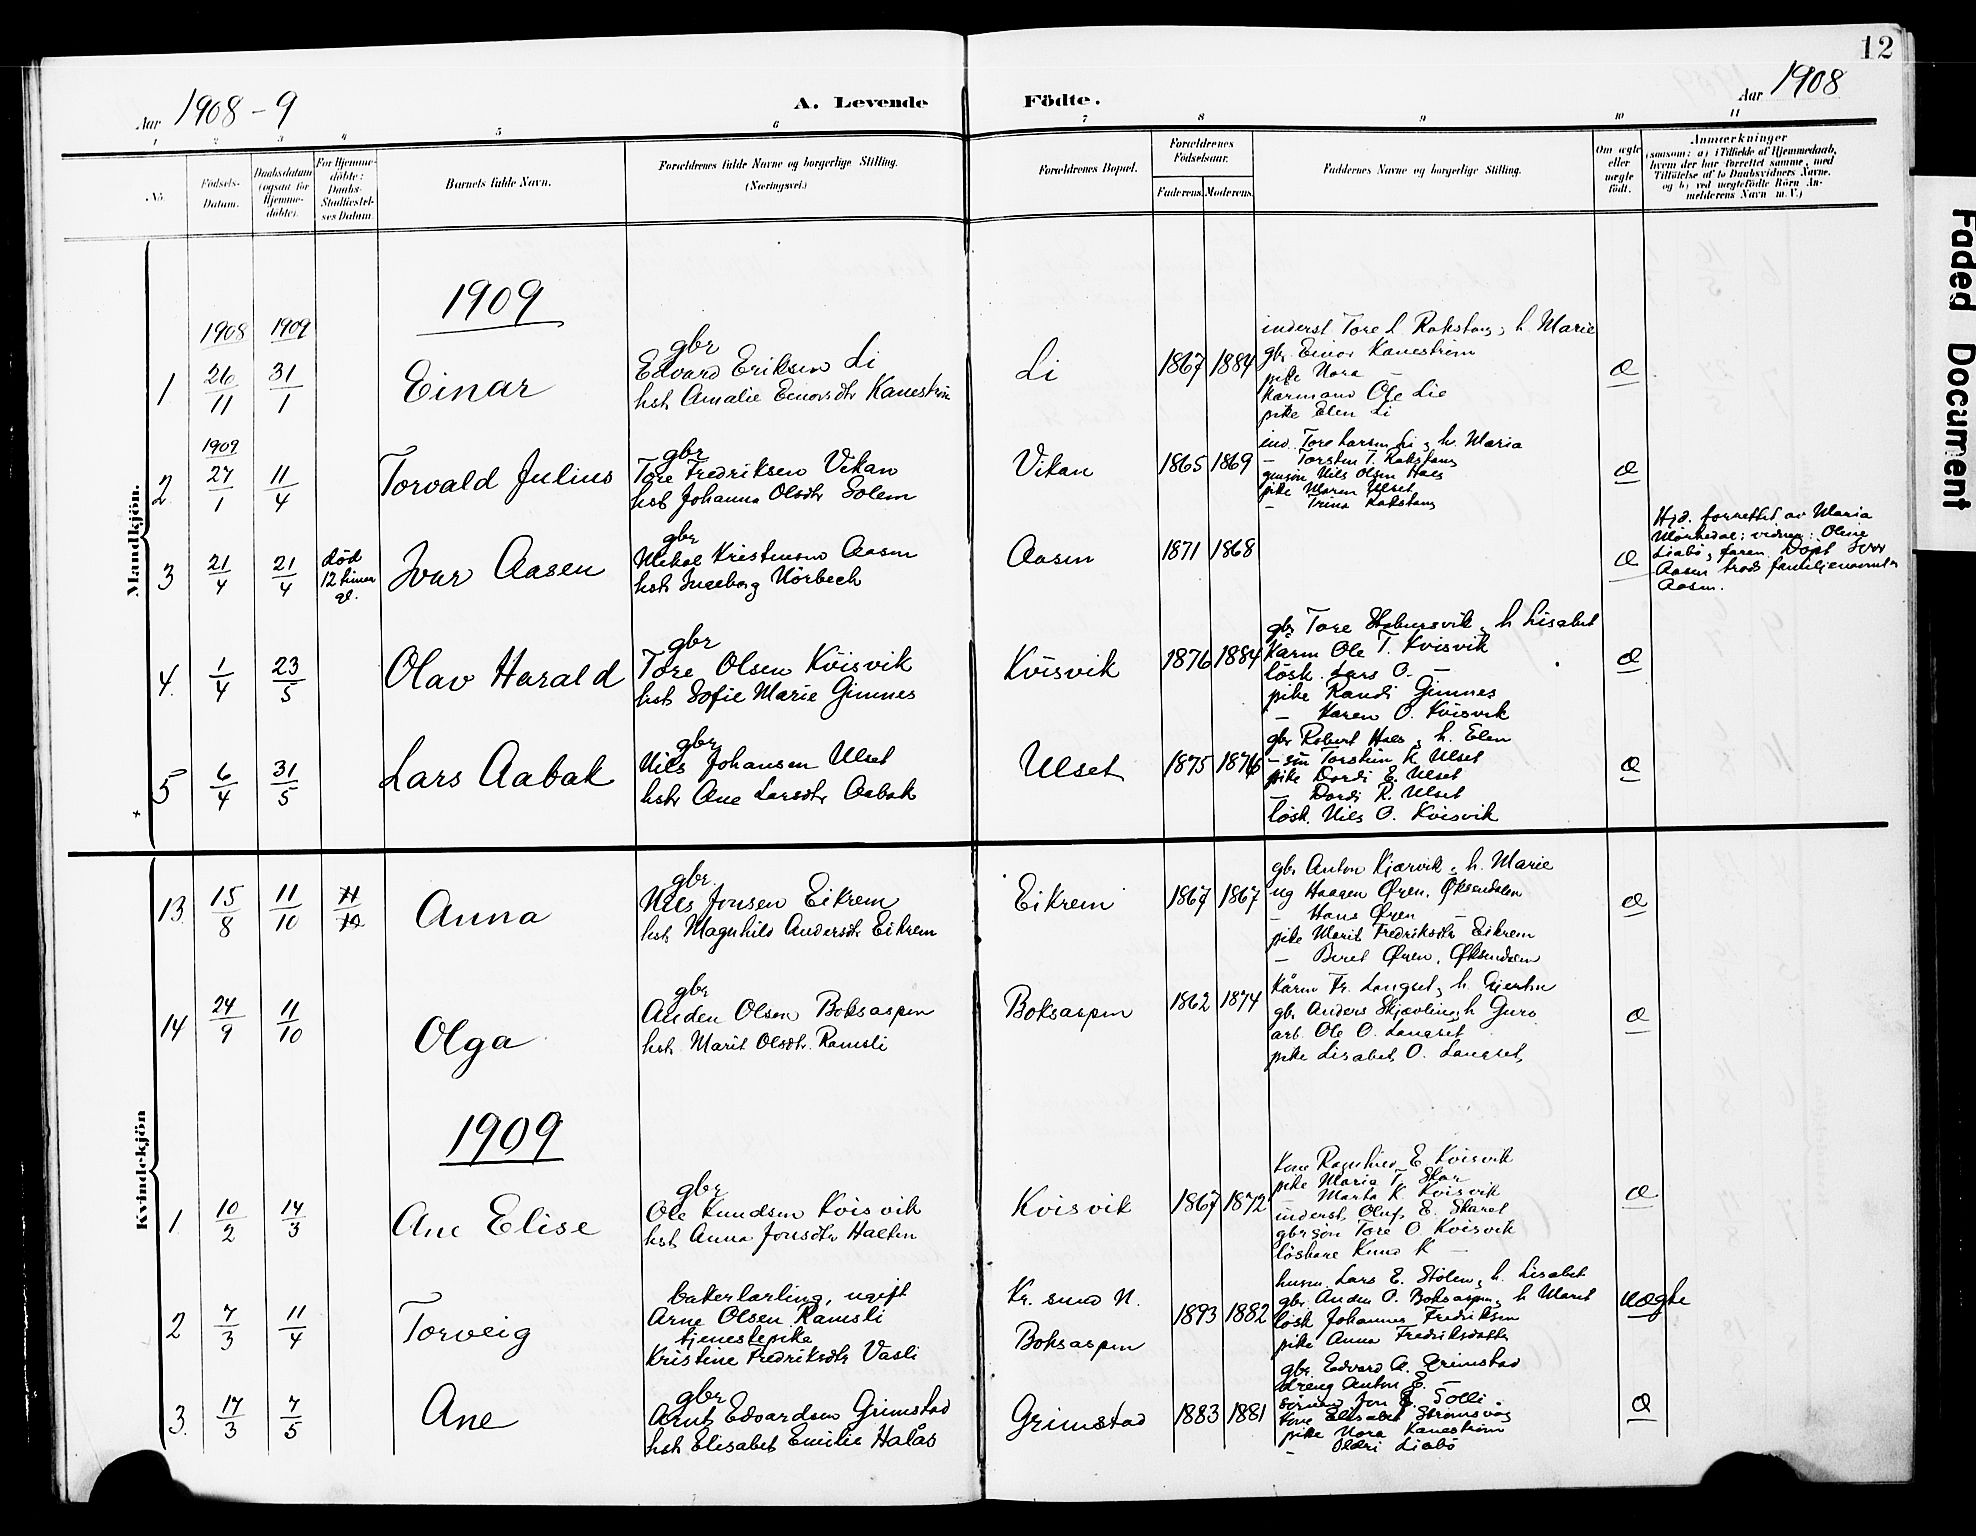 12
Aar 1908-9
A. Levende Födte.
Aar 1908
1 2 3 4 5 6 7 8 9 10 11
No.
Födsels-Datum.
Daabsdatum (ogsaa for Hjemme-döbte).
For Hjemme-döbte: Daabs-Stadfæstel-ses Datum
Barnets fulde Navn.
Forældrenes fulde Navne og borgerlige Stilling. (Næringsvei.)
Forældrenes Bopæl.
Forældrenes Födselsaar.
Faderens. Moderens.
Faddernes Navne og borgerlige Stilling.
Om ægte eller uægte födt.
Anmærkninger
(saasom: a) i Tilfælde af Hjemmedaab, hvem der har forrettet samme, med Tilföielse af to Daabsvidners Navne, og b) ved uægtefödte Börn An-melderens Navn m.V.)
Mandkjön.
1909
1908 1909
1 26/11 31/1 Einar
gbr
Edvard Eriksen Li
hst Amalie Einarsdtr Kanestrøm
Li 1867 1884
inderst Tore L. Rakstang, h. Marie
gbr Einar Kanestrøm
pike Nora –
Kårmand Ole Lie
pike Elen Li
Æ
1909
2 27/1 11/4 Torvald Julius
gbr
Tore Fredriksen Vikan
hst Johanna Olsdtr Solem
Vikan 1865 1869
ind. Tore Larsen Li, h. Maria
– Torsten T. Rakstang
Nils Olsen Hals
pike Maren Ulset
– Trina Rakstang
Æ
3 21/4 21/4 död 12 timer gl. Ivar Aasen
gbr
Mikal Kristensen Aasen
hst Ingeborg Mörbech
Aasen 1871 1868
Æ
Hjd. forrettet av Maria
Mörkedal; vidner: Oline
Liabö, faren. Döpt Ivar
Aasen trods familjenavnet
Aasen.
4. 1/4 23/5 Olav Harald
gbr
Tore Olsen Kvisvik
hst Sofie Marie Gimnes
Kvisvik 1876 1884
gbr Tore Stokkersvik, h Lisabet
Kårm Ole T. Kvisvik
lösk. Lars O. –
pike Randi Gimnes
– Karen O. Kvisvik
Æ
5 6/4 31/5 Lars Aabak
gbr
Nils Johansen Ulset
hstr Ane Larsdtr Aabak
Ulset 1875 1876
gbr Robert Hals, h. Elen
– sön Torstein K Ulset
pike Dordi E. Ulset
– Dordi R. Ulset
lösk. Nils O. Kvisvik
Æ
Kvindekjön
13. 15/8 11/10 11/10 Anna
gbr.
Nils Jonsen Eikrem
hst. Magnhild Andersdtr Eikrem
Eikrem 1867 1867
gbr Anton Kjørvik, h. Marie
ug Haagen Øren, Øksendalen
– Hans Øren –
pike Marit Fredriksdtr Eikrem
– Beret Øren, Øksendalen
Æ
14 24/9 11/10 Olga
gbr
Anders Olsen Boksaspen
hst. Marit Olsdtr. Ramsli
Boksaspen 1862 1874
Kårm Fr. Langset, h. Gjertru
gbr Anders Skjøvling, h Guro
arb. Ole O. Langset
pike Lisabet O. Langset
Æ
1909
1 10/2 14/3 Ane Elise
gbr
Ole Knudsen Kvisvik
hst Anna Jonsdtr Halten
Kvisvik 1867 1872
Kone Ragnhild E Kvisvik
pike Maria T. Skar
– Marta K. Kvisvik
inderst Oluf E. Skaret
gbrsøn Tore O. Kvisvik
löskare Knud K –
Æ
2 7/3 11/4 Torveig
bakerlærling, ugift
Arne Olsen Ramsli
tjenestepike
Kristine Fredriksdtr Vasli
Kr.sund N.
Boksaspen
1893 1882
husm. Lars E. Stölen, h. Lisabet
gbr. Anders O. Boksaspen, h Marit
lösk Johannes Fredriksen
pike Anna Fredriksdatter
uægte
3. 17/3 7/5 Ane
gbr
Arnt Edvardsen Grimstad
hst Elisabet Emilie Halås
Grimstad 1883 1881
gbr. Edvard A. Grimstad
dreng Anton E. –
Jon E. Tolli
Kone Elisabet Strömsvåg
pike Nora Kanestrøm
– Oldri Liabö
Æ
Faded Document